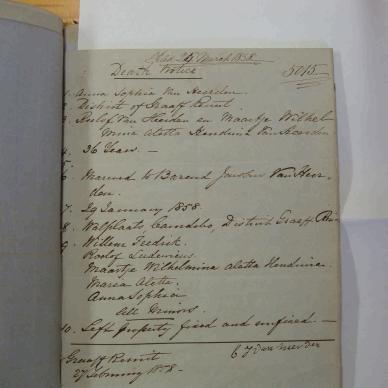 Filed 24 March 1858.
Death Notice
5015
1. Anna Sophia Van Heerden.
2. District of Graaff Reinet.
3. Roelof Van Heerden en Maartje Wilhel-
mina Aletta Hendrina Van Heerden
4. 36 Years. —
5.
6. Married to Barend Van Heer-
den.
7. 29 January 1858.
8. Camdebo, District Graaff Rei-
9. Willem Fredrik.
Roelof Ludovicus.
Maartje Wilhelmina Aletta Hendrina.
Maria Aletta.
Anna Sophia
All Minors.
10. Left property fixed and unfixed. —
Graaff Reinet
27 February 1858 —